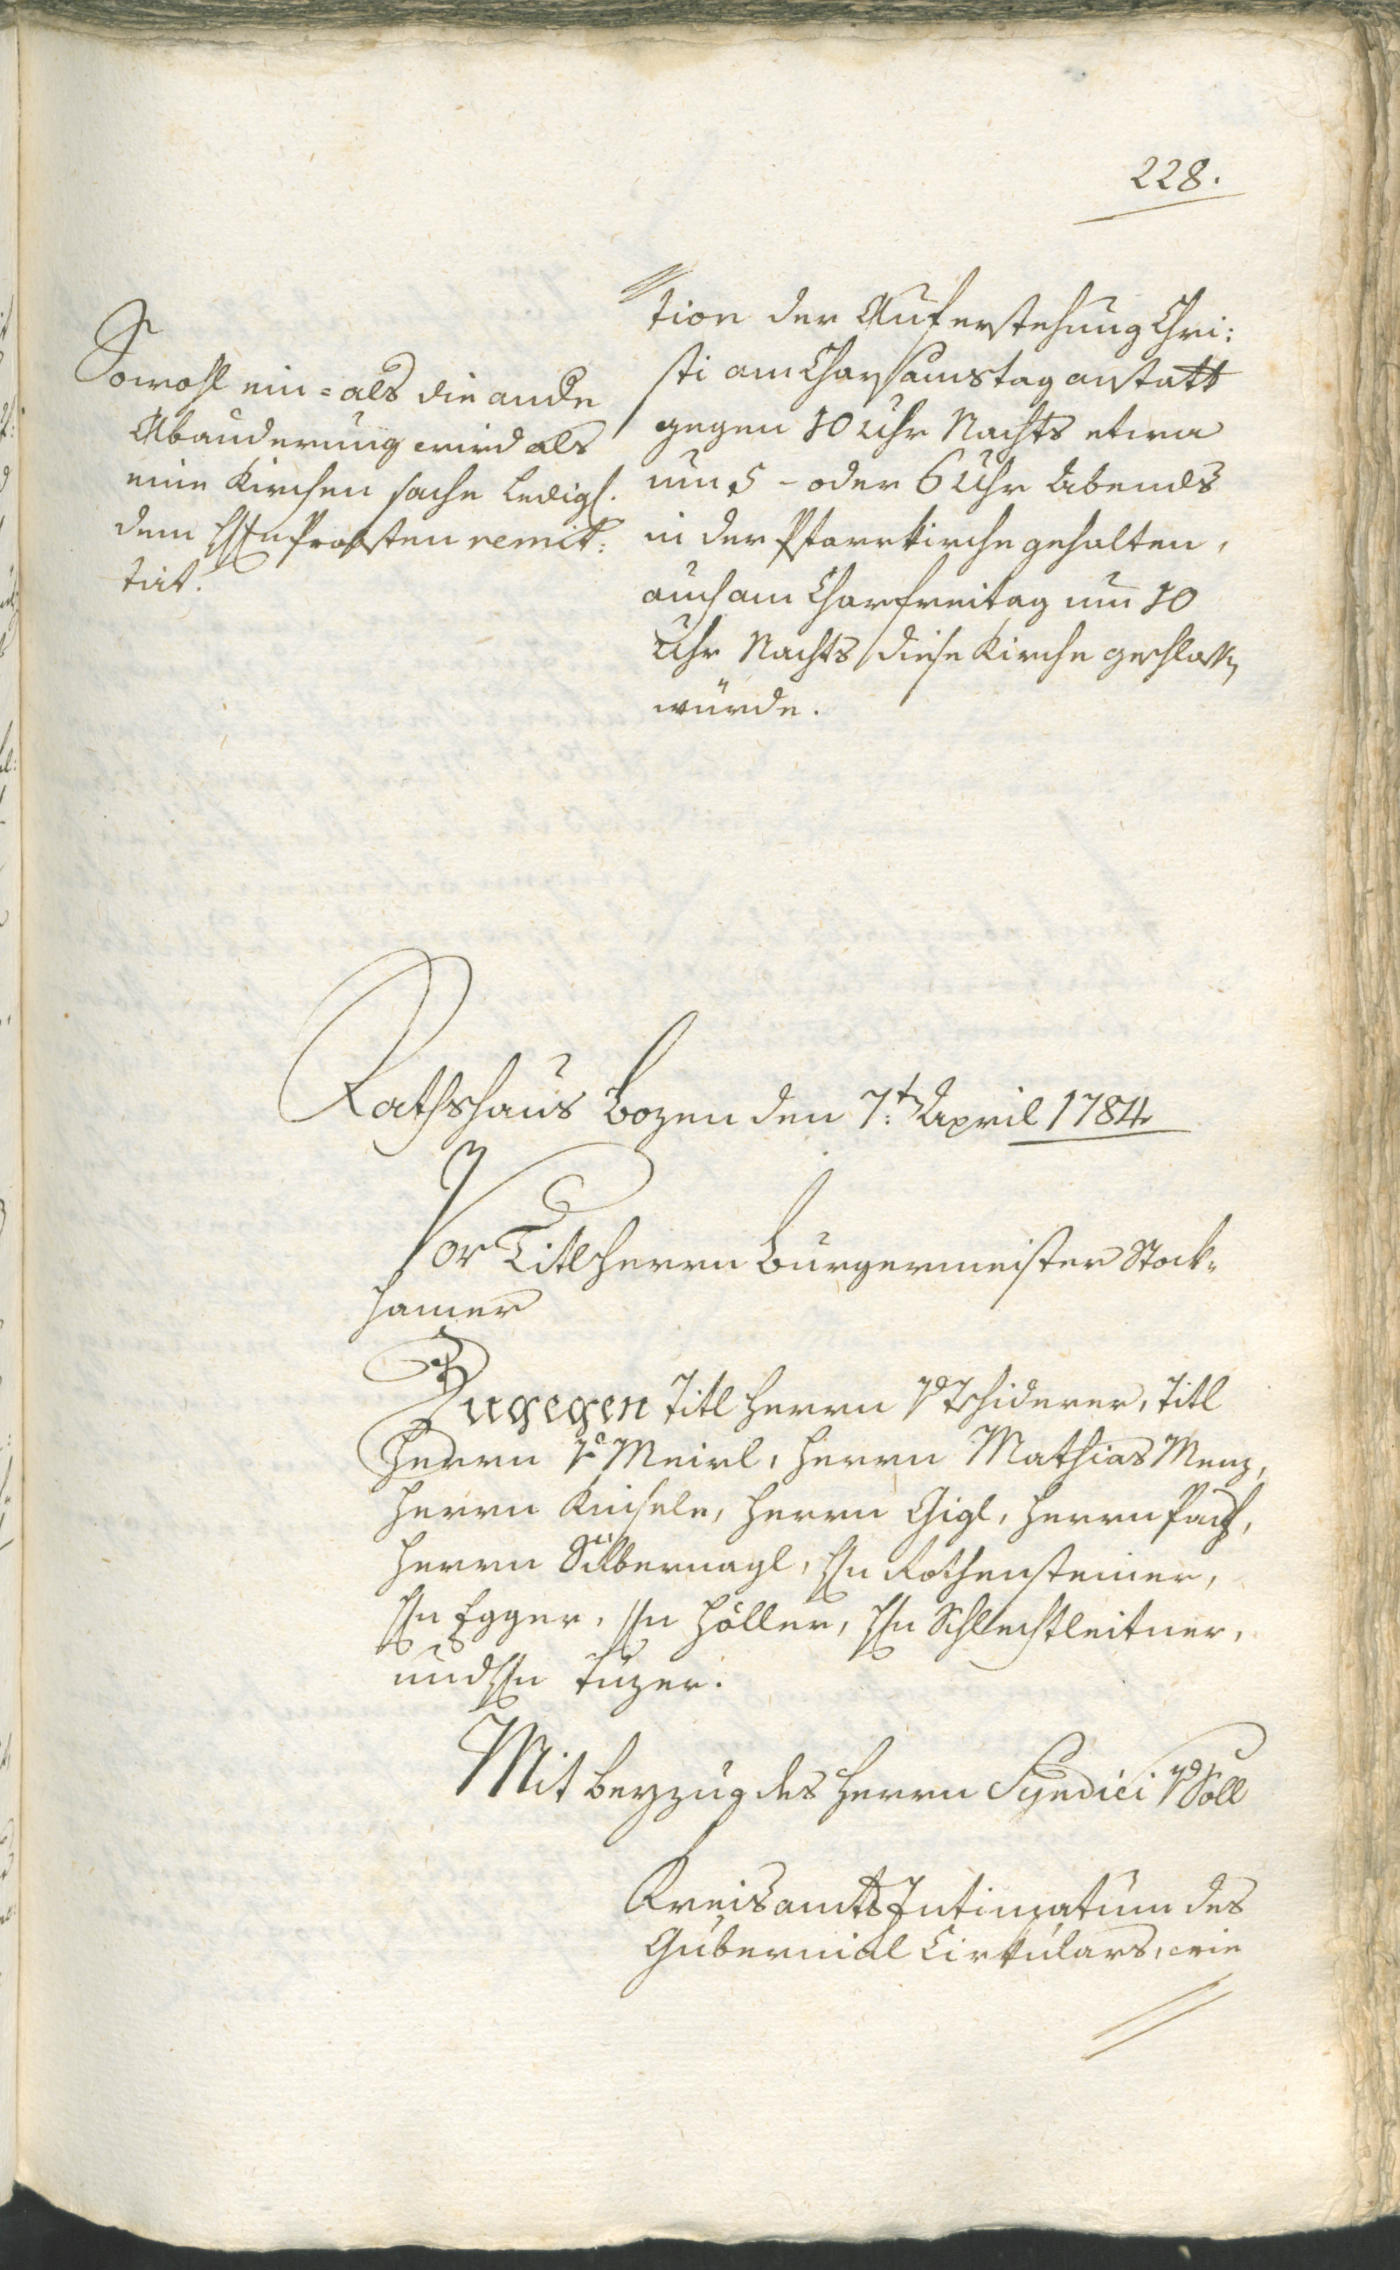 228.
Sowohl ein= als die ande
Abänderung wird als
eine Kirchen sache ledigl.
dem HHn Probsten remit:
tirt.
tion der Auferstehung Chri:
sti am Charsamstag anstatt
gegen 10 Uhr Nachts etwa
um 5 - oder 6 Uhr Abends
in der Pfarrkirche gehalten,
auch am Charfreitag um 10
Uhr Nachts diese Kirche geschlossen
würde.
Rathshaus Bozen den 7.t April 1784
Vor Titl Herrn Burgermeister Stock-
hamer
Zugegen Titl Herrn v Tschiderer, Titl
Herrn v Meirl, Herrn Mathias Menz,
Herrn Knisele, Herrn Gigl, Herrn
Herrn Silbernagl, Hn Rothensteiner,
Hn Egger, Hn Höller, Hn Schlechtleitner,
und Hn Tuzer.
Mit beyzug des Herrn Syndici v Söll
Kreisamts Intimatum des
Gubernial Cirkulars, wie